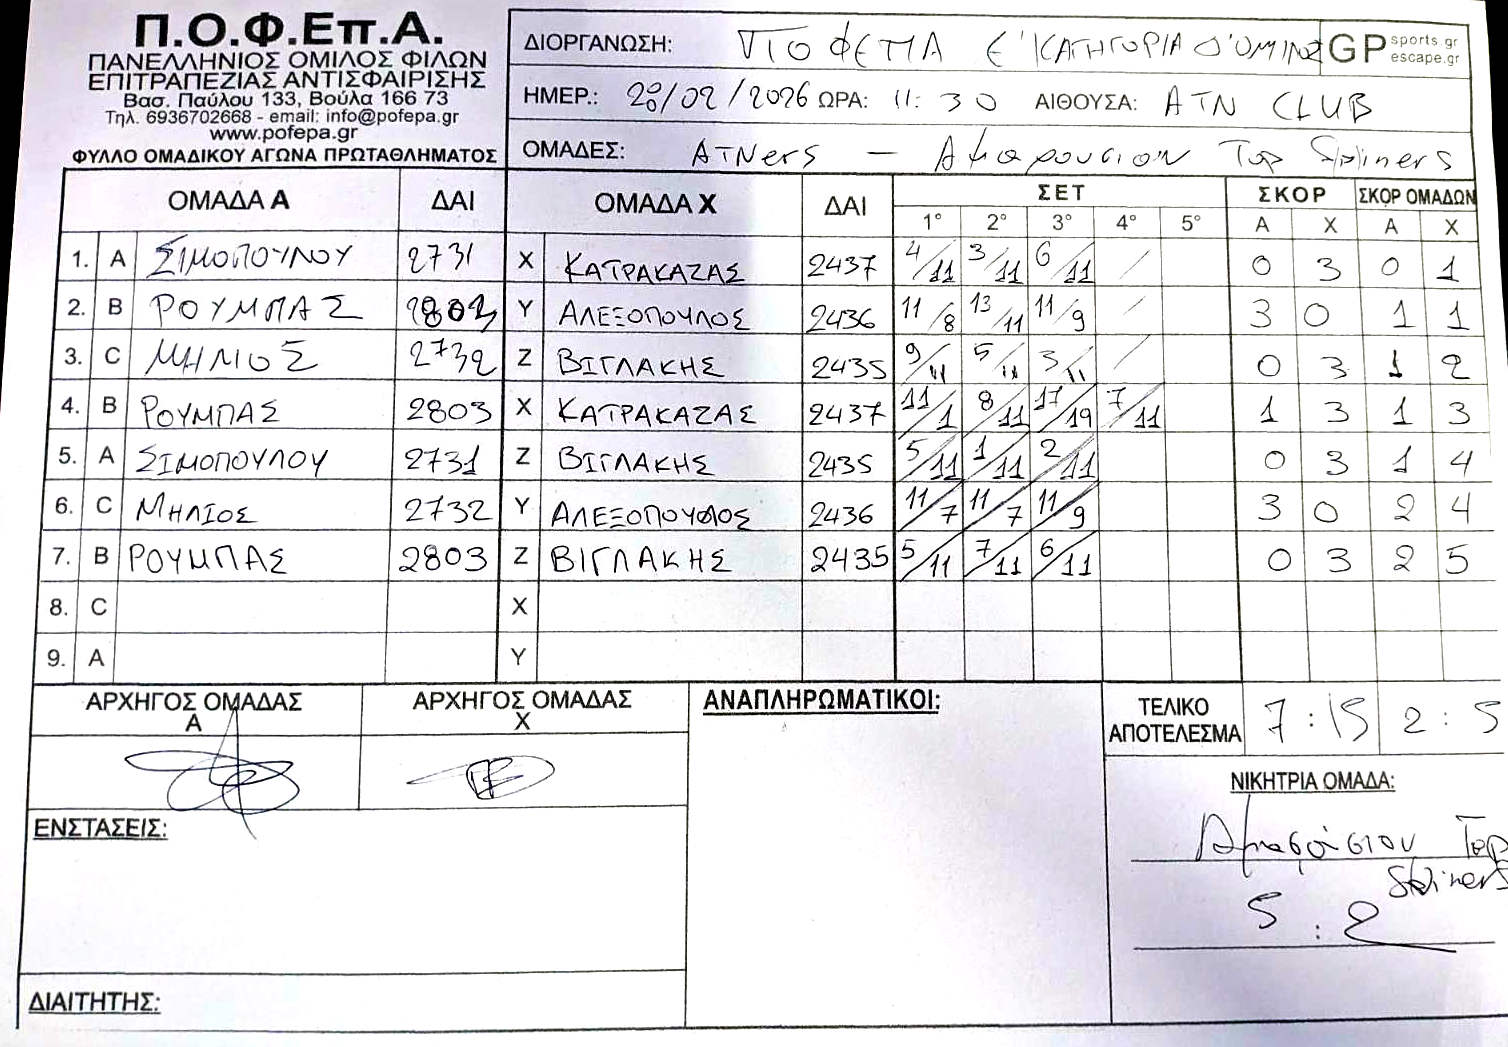 Π.Ο.Φ.Επ.Α.
ΠΑΝΕΛΛΗΝΙΟΣ ΟΜΙΛΟΣ ΦΙΛΩΝ
ΕΠΙΤΡΑΠΕΖΙΑΣ ΑΝΤΙΣΦΑΙΡΙΣΗΣ
Βασ. Παύλου 133, Βούλα 166 73
Τηλ. 6936702668 - email: info@pofepa.gr
www.pofepa.gr
ΦΥΛΛΟ ΟΜΑΔΙΚΟΥ ΑΓΩΝΑ ΠΡΩΤΑΘΛΗΜΑΤΟΣ
ΔΙΟΡΓΑΝΩΣΗ: ΠΟΦΕΠΑ Ε' ΚΑΤΗΓΟΡΙΑ ΟΜΙΛΟΣ GP sports.gr escape.gr
ΗΜΕΡ.: 20/02/2026 ΩΡΑ: 11:30 ΑΙΘΟΥΣΑ: ATN CLUB
ΟΜΑΔΕΣ: ATNers - Αμαρουσιον Top Spiners
ΟΜΑΔΑ Α ΔΑΙ ΟΜΑΔΑ Χ ΔΑΙ ΣΕΤ ΣΚΟΡ ΣΚΟΡ ΟΜΑΔΩΝ
1° 2° 3° 4° 5° Α Χ Α Χ
1. Α ΣΙΜΟΠΟΥΛΟΥ 2731 Χ ΚΑΤΡΑΚΑΖΑΣ 2437 4/11 3/11 6/11 / 0 3 0 1
2. Β ΡΟΥΜΠΑΣ 2803 Υ ΑΛΕΞΟΠΟΥΛΟΣ 2436 11/8 13/11 11/9 / 3 0 1 1
3. C ΜΗΛΙΟΣ 2732 Ζ ΒΙΓΛΑΚΗΣ 2435 9/11 5/11 3/11 / 0 3 1 2
4. Β ΡΟΥΜΠΑΣ 2803 Χ ΚΑΤΡΑΚΑΖΑΣ 2437 11/1 8/11 17/19 7/11 1 3 1 3
5. Α ΣΙΜΟΠΟΥΛΟΥ 2731 Ζ ΒΙΓΛΑΚΗΣ 2435 5/11 1/11 2/11 0 3 1 4
6. C ΜΗΛΙΟΣ 2732 Υ ΑΛΕΞΟΠΟΥΛΟΣ 2436 11/7 11/7 11/9 3 0 2 4
7. Β ΡΟΥΜΠΑΣ 2803 Ζ ΒΙΓΛΑΚΗΣ 2435 5/11 7/11 6/11 0 3 2 5
8. C Χ
9. Α Υ
ΑΡΧΗΓΟΣ ΟΜΑΔΑΣ Α ΑΡΧΗΓΟΣ ΟΜΑΔΑΣ Χ ΑΝΑΠΛΗΡΩΜΑΤΙΚΟΙ: ΤΕΛΙΚΟ ΑΠΟΤΕΛΕΣΜΑ 7:15 2:5
ΝΙΚΗΤΡΙΑ ΟΜΑΔΑ:
Top
Spiners
5:2
ΕΝΣΤΑΣΕΙΣ:
ΔΙΑΙΤΗΤΗΣ: